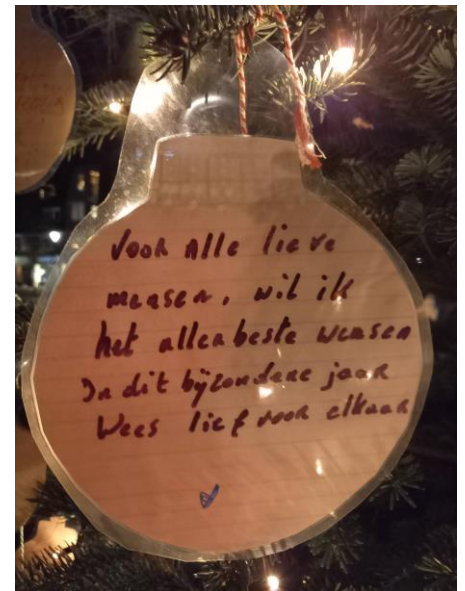 Voor alle lieve
mensen, wil ik
het allerbeste wensen
In dit bijzondere jaar
Wees lief voor elkaar